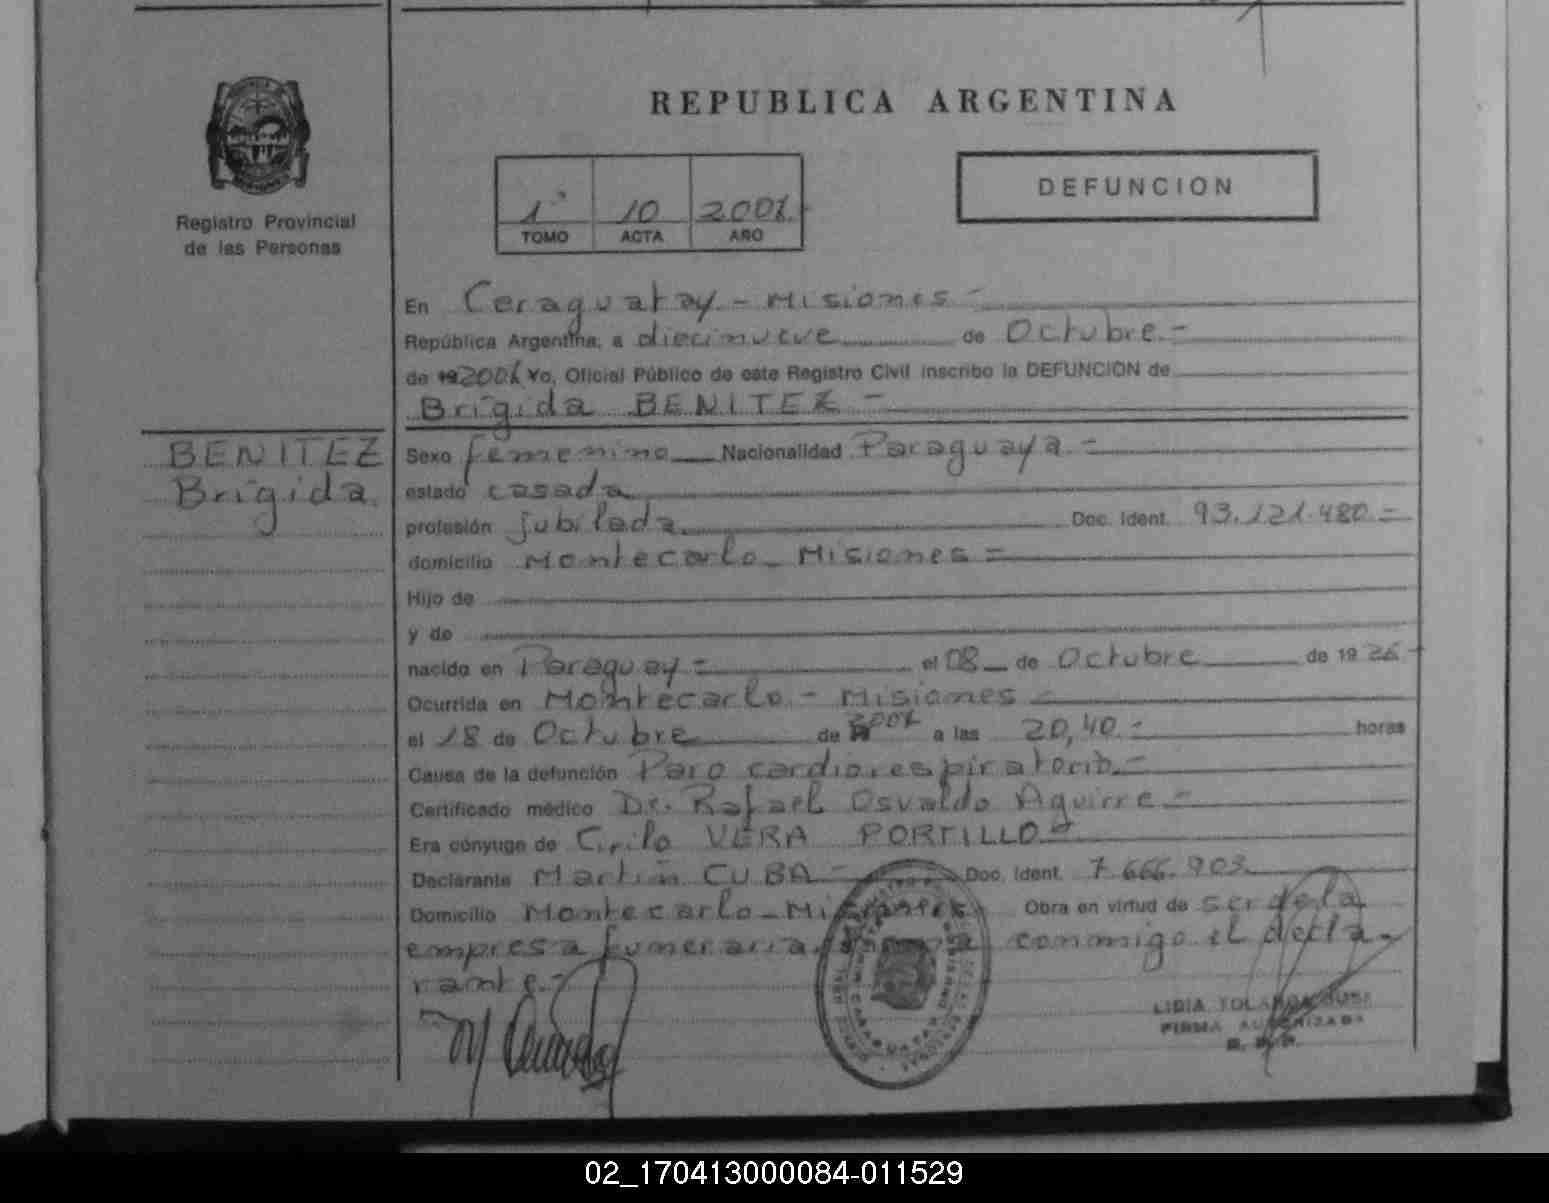 REPUBLICA ARGENTINA
DEFUNCION
Registro Provincial
de las Personas
1° 10 2001
TOMO ACTA AÑO
En Caraguatay - Misiones -
República Argentina, a diecinueve de Octubre.-
de 19 2001 Yo, Oficial Público de este Registro Civil inscribo la DEFUNCION de
Brígida BENITEZ -
BENITEZ
Brígida
Sexo femenino Nacionalidad Paraguaya -
estado casada
profesión jubilada Doc. Ident. 93.121.480.-
domicilio Montecarlo - Misiones =
Hijo de
y de
nacido en Paraguay = el 08 de Octubre de 19 26 -
Ocurrida en Montecarlo - Misiones -
el 18 de Octubre de 2001 a las 20,40.- horas
Causa de la defunción Paro cardiorespiratorio.-
Certificado médico Dr. Rafael Osvaldo Aguirre -
Era cónyuge de Cirilo VERA PORTILLO -
Declarante Martín CUBA - Doc. Ident. 7.666.903
Domicilio Montecarlo - Misiones Obra en virtud de ser de la
empresa funeraria conmigo el decla-
rante.-
FIRMA AUTORIZADA
02_170413000084-011529